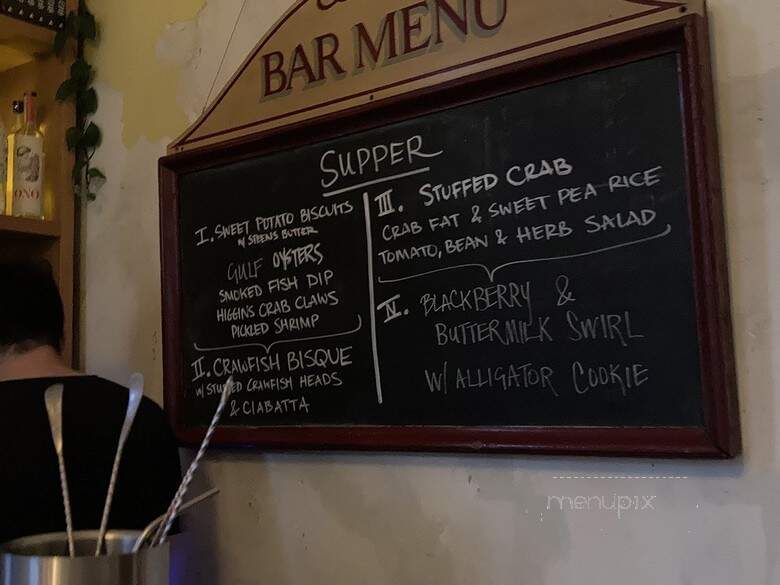 BAR MENU
SUPPER
I. SWEET POTATO BISCUITS
W/ STEENS BUTTER
GULF OYSTERS
SMOKED FISH DIP
HIGGINS CRAB CLAWS
PICKLED SHRIMP
II. CRAWFISH BISQUE
W/ STUFFED CRAWFISH HEADS
& CIABATTA
III. STUFFED CRAB
CRAB FAT & SWEET PEA RICE
TOMATO, BEAN & HERB SALAD
IV. BLACKBERRY &
BUTTERMILK SWIRL
W/ ALLIGATOR COOKIE
menupix